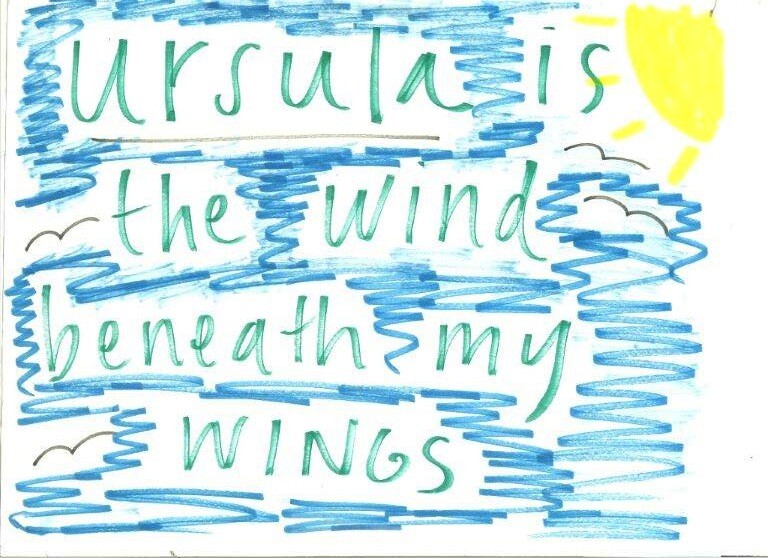 Ursula is
the wind
beneath my
WINGS